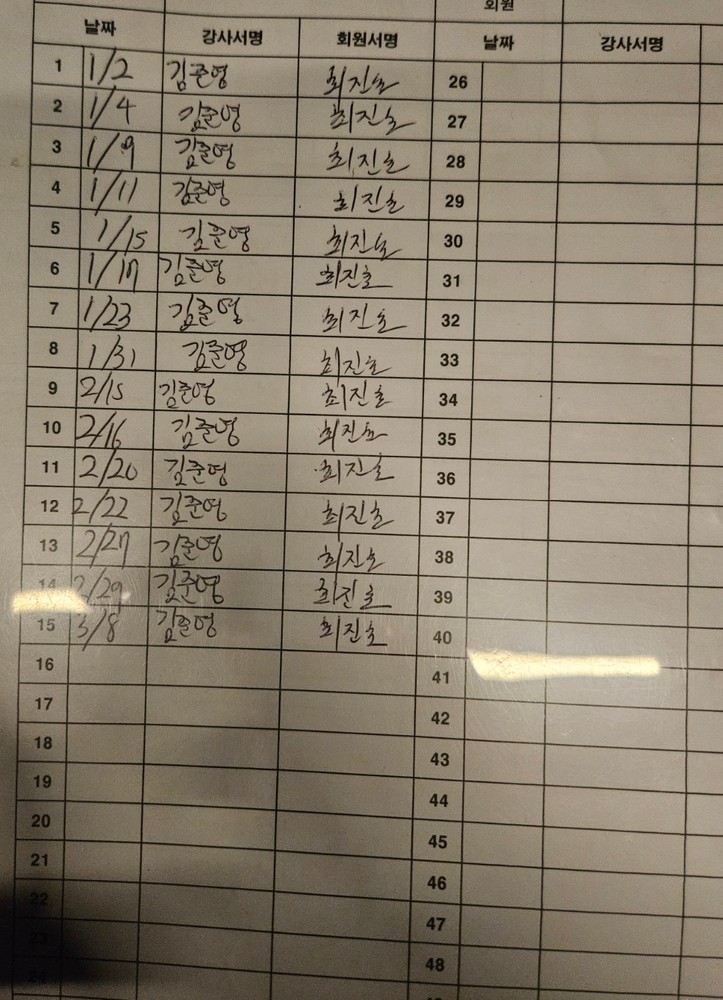 회원
날짜 강사서명 회원서명 날짜 강사서명
1 1/2 김준영 최진호 26
2 1/4 김준영 최진호 27
3 1/9 김준영 최진호 28
4 1/11 김준영 최진호 29
5 1/15 김준영 최진호 30
6 1/17 김준영 최진호 31
7 1/23 김준영 최진호 32
8 1/31 김준영 최진호 33
9 2/15 김준영 최진호 34
10 2/16 김준영 최진호 35
11 2/20 김준영 최진호 36
12 2/22 김준영 최진호 37
13 2/27 김준영 최진호 38
14 2/29 김준영 최진호 39
15 3/8 김준영 최진호 40
16 41
17 42
18 43
19 44
20 45
21 46
22 47
23 48
24